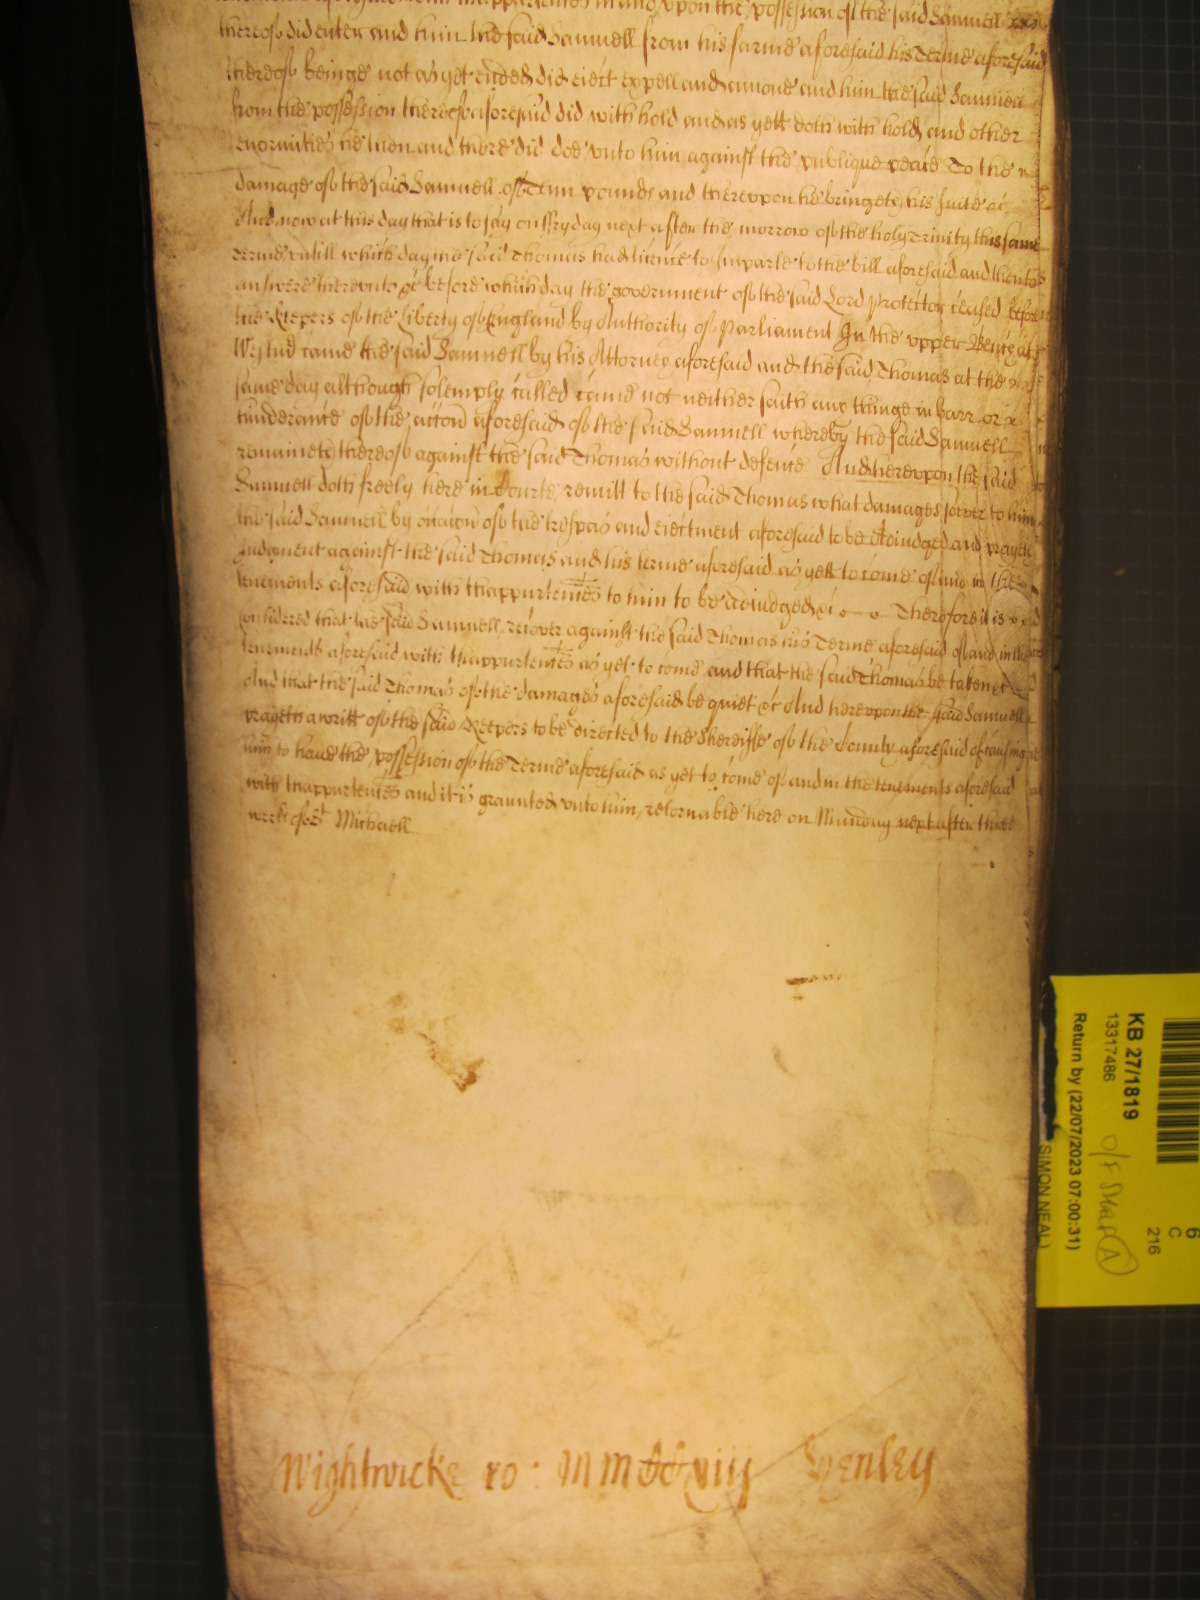 tenements aforesaid with thappurtences in and vpon the possession of the said Samuell
thereof did enter and him the said Samuell from his farme aforesaid his Terme aforesaid
thereof beinge not as yet ended did eiect expell and amove and him the said Samuell
from the possession thereof aforesaid did with hold and as yett doth with hold and other
enormities he then and there did doe vnto him against the publique peace To the
damage of the said Samuell of Tenn pounds and therevpon he bringeth his suite &c
And now at this day that is to say on Fryday next after the morrow of the holy Trinity this same
Terme vntill which day the said Thomas had licence to Imparle to the bill aforesaid and then to
answere therevnto &c before which day the government of the said Lord Protector ceased before
the Keepers of the Liberty of England by Authority of Parliament In the vpper Bench at
came the said Samuell by his Attorney aforesaid and the said Thomas at the
same day although solemply called came not neither saith any thinge in barr or
hinderance of the accon aforesaid of the said Samuell whereby the said Samuell
remaineth thereof against the said Thomas without defence And herevpon the said
Samuell doth freely here in Courte remitt to the said Thomas what damages soever to him
the said Samuell by occacon of the trespas and eiectment aforesaid to be adiudged and prayeth
Judgment against the said Thomas and his terme aforesaid as yett to come of and in the
tenements aforesaid with thappurtences to him to be adiudged &c Therefore it is
considered that the said Samuell recover against the said Thomas his Terme aforesaid of and in the
tenements aforesaid with thappurtences as yet to come and that the said Thomas be taken &c
And that the said Thomas of the damages aforesaid be quiet &c And herevpon the said Samuell
prayeth a writt of the said Keepers to be directed to the Sherriffe of the County aforesaid of causinge
him to haue the possession of the Terme aforesaid as yet to come of and in the tenements aforesaid
with thappurtences and it is graunted vnto him retornable here on Munday next after three
weekes of St Michaell
Wightwicke ro: MMCCxiij Henley
KB 27/1819
13317486
Return by (22/07/2023 07:00:31)
SIMON NEAL)
6
C
216
A